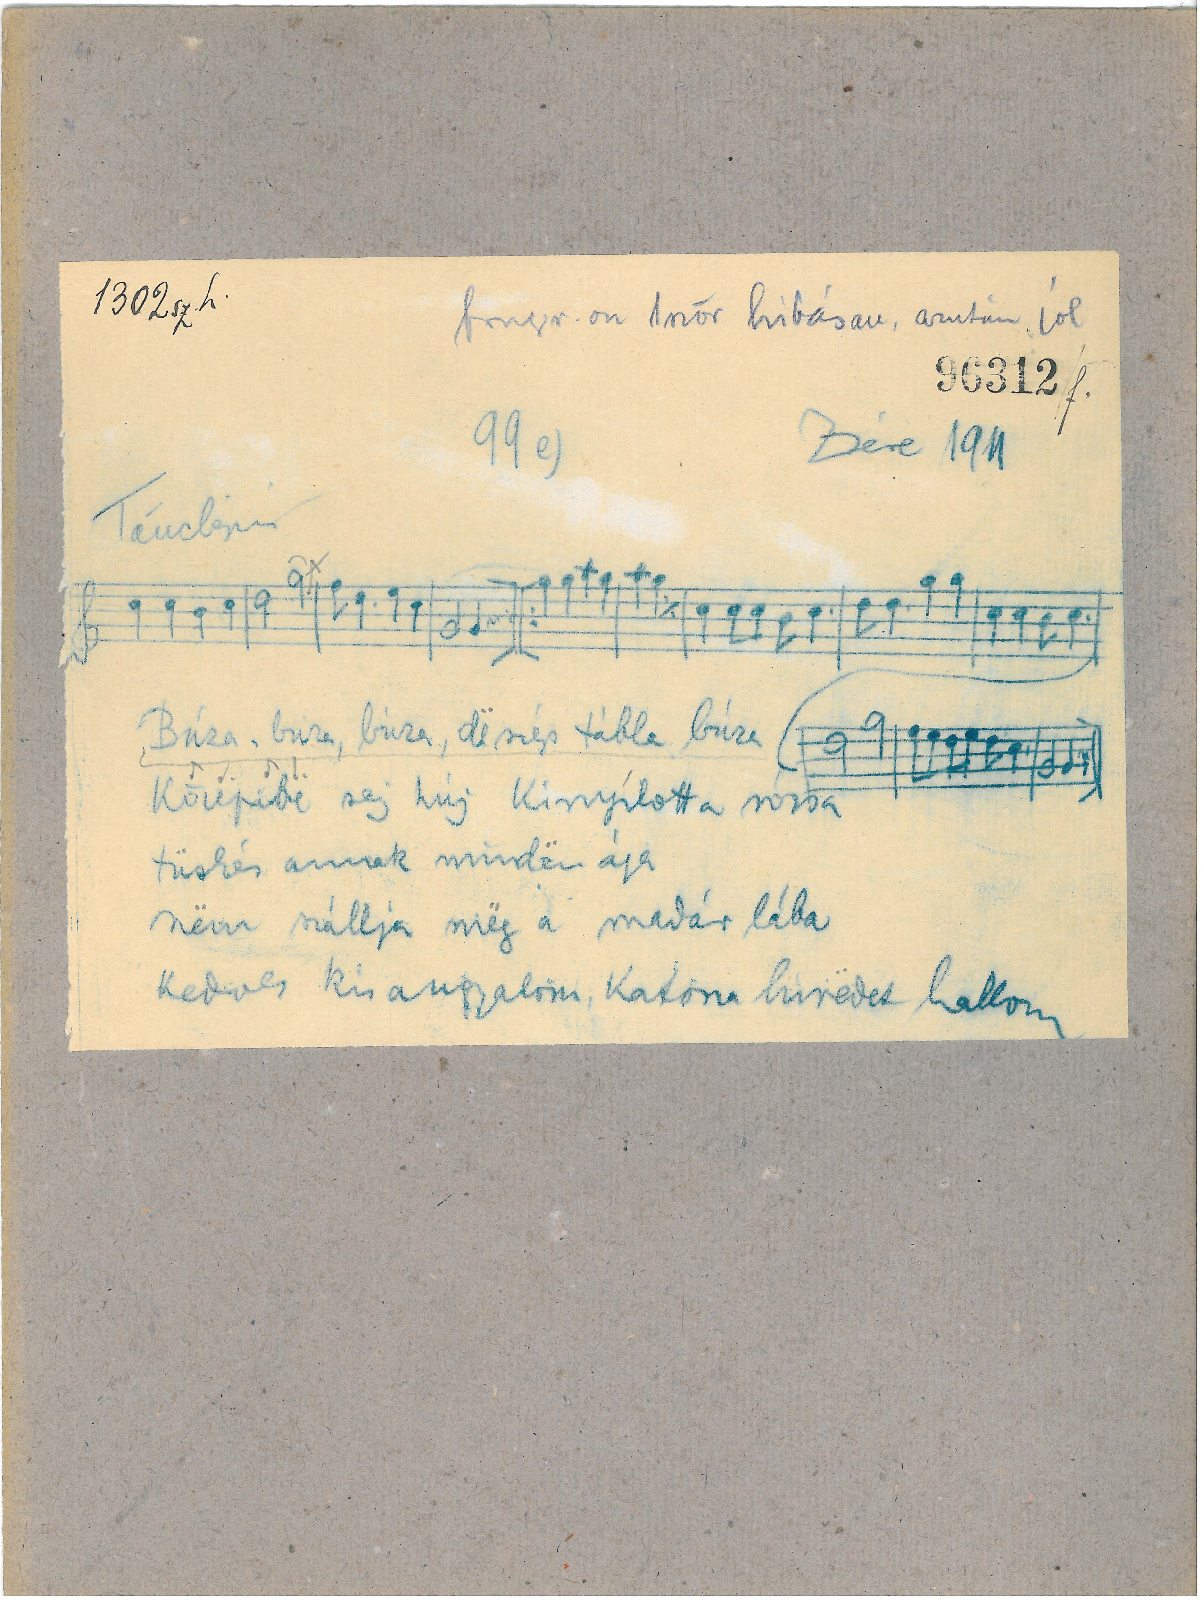 1302 sz. h.
fonogr.-on 1ször hibásan, azután jól
96312 f.
99 e)
Zsére 1911
Búza, búza, búza, dë szép tábla búza
Közepibë sej húj Kinyílott a rózsa
tüskés annak mindën ága
nëm szállja mëg a madár lába
Kedves kis angyalom, Katona hirëdet hallom